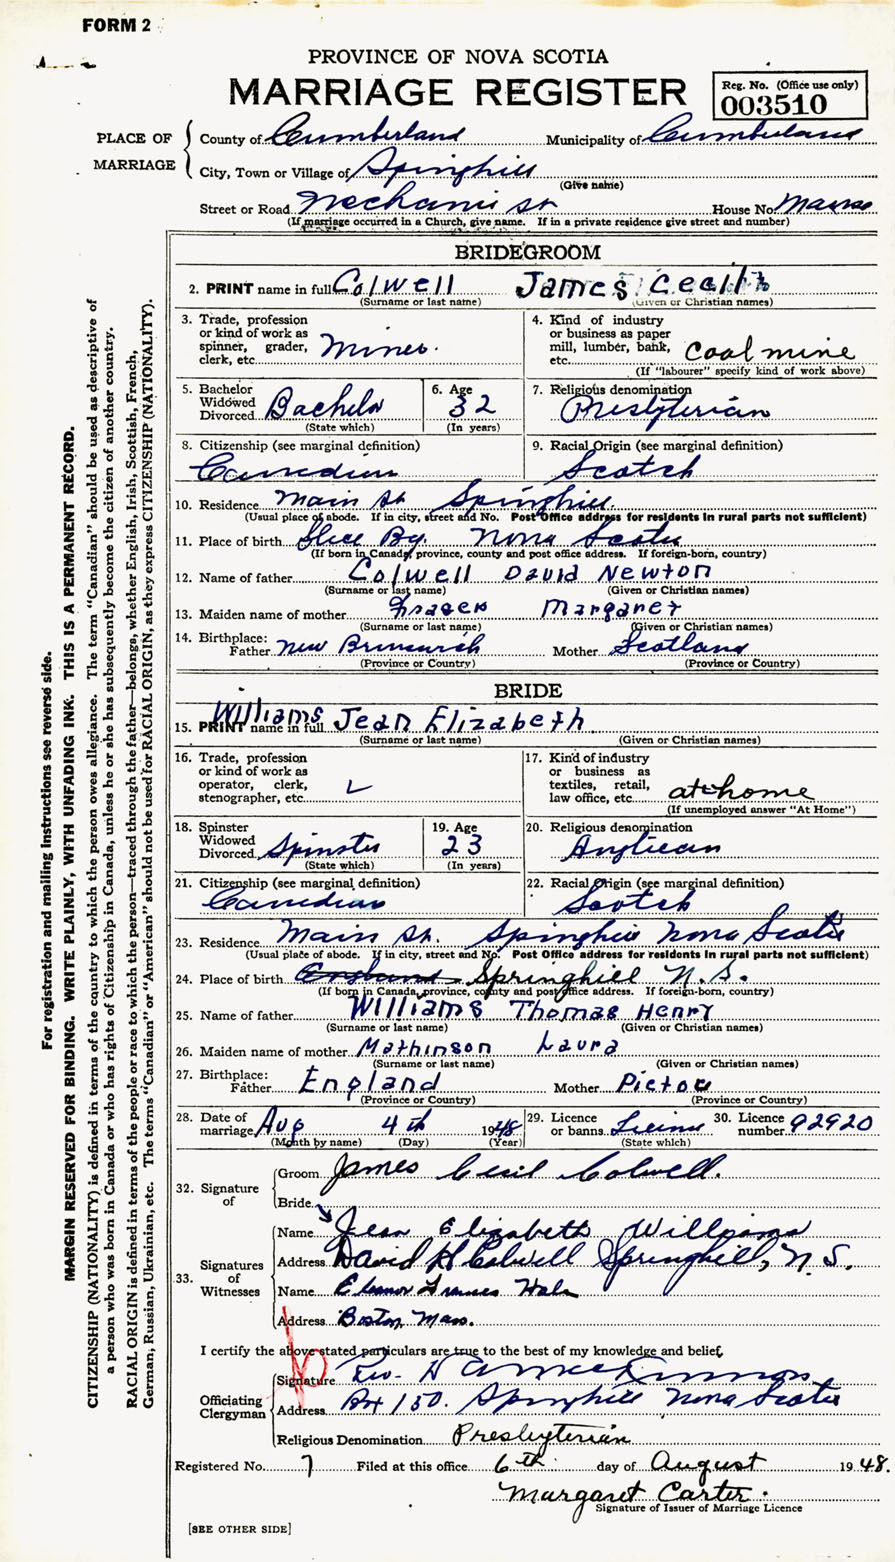 FORM 2
PROVINCE OF NOVA SCOTIA
MARRIAGE REGISTER
Reg. No. (Office use only)
003510
PLACE OF MARRIAGE
County of Cumberland Municipality of Cumberland
City, Town or Village of Springhill
(Give name)
Street or Road Mechanic St House No. Manse
(If marriage occurred in a Church, give name. If in a private residence give street and number)
BRIDEGROOM
2. PRINT name in full Colwell James Cecil
(Surname or last name) (Given or Christian names)
3. Trade, profession or kind of work as spinner, grader, clerk, etc. Miner
4. Kind of industry or business as paper mill, lumber, bank, etc. Coal mine
(If "labourer" specify kind of work above)
5. Bachelor Widowed Divorced Bachelor
(State which)
6. Age 32
(In years)
7. Religious denomination Presbyterian
8. Citizenship (see marginal definition) Canadian
9. Racial Origin (see marginal definition) Scotch
10. Residence Main St Springhill.
(Usual place of abode. If in city, street and No. Post Office address for residents in rural parts not sufficient)
11. Place of birth Glace Bay. Nova Scotia
(If born in Canada, province, county and post office address. If foreign-born, country)
12. Name of father Colwell David Newton
(Surname or last name) (Given or Christian names)
13. Maiden name of mother Margaret
(Surname or last name) (Given or Christian names)
14. Birthplace: Father New Brunswick Mother Scotland
(Province or Country) (Province or Country)
BRIDE
15. PRINT name in full Williams Jean Elizabeth
(Surname or last name) (Given or Christian names)
16. Trade, profession or kind of work as operator, clerk, stenographer, etc.
17. Kind of industry or business as textiles, retail, law office, etc. at home
(If unemployed answer "At Home")
18. Spinster Widowed Divorced Spinster
(State which)
19. Age 23
(In years)
20. Religious denomination Anglican
21. Citizenship (see marginal definition) Canadian
22. Racial Origin (see marginal definition) Scotch
23. Residence Main St. Springhill Nova Scotia
(Usual place of abode. If in city, street and No. Post Office address for residents in rural parts not sufficient)
24. Place of birth England Springhill N.S.
(If born in Canada, province, county and post office address. If foreign-born, country)
25. Name of father Williams Thomas Henry
(Surname or last name) (Given or Christian names)
26. Maiden name of mother Mathinson Laura
(Surname or last name) (Given or Christian names)
27. Birthplace: Father England Mother Pictou
(Province or Country) (Province or Country)
28. Date of marriage Aug 4th 1948
(Month by name) (Day) (Year)
29. Licence or banns License
(State which)
30. Licence number 92920
32. Signature of
Groom James Cecil Colwell.
Bride
33. Signatures of Witnesses
Name Jean Elizabeth Williams
Address David H Colwell Springhill, N.S.
Name Eleanor Frances Hale
Address Boston, Mass.
I certify the above stated particulars are true to the best of my knowledge and belief,
Officiating Clergyman
Signature Rev. D A McKinnon
Address Box 150. Springhill Nova Scotia
Religious Denomination Presbyterian
Registered No. 7 Filed at this office 6th day of August 1948.
Margaret Carter.
Signature of Issuer of Marriage Licence
[SEE OTHER SIDE]
For registration and mailing instructions see reverse side.
MARGIN RESERVED FOR BINDING. WRITE PLAINLY, WITH UNFADING INK. THIS IS A PERMANENT RECORD.
CITIZENSHIP (NATIONALITY) is defined in terms of the country to which the person owes allegiance. The term "Canadian" should be used as descriptive of
a person who was born in Canada or who has rights of Citizenship in Canada, unless he or she has subsequently become the citizen of another country.
RACIAL ORIGIN is defined in terms of the people or race to which the person—traced through the father—belongs, whether English, Irish, Scottish, French,
German, Russian, Ukrainian, etc. The terms "Canadian" or "American" should not be used for RACIAL ORIGIN, as they express CITIZENSHIP (NATIONALITY).